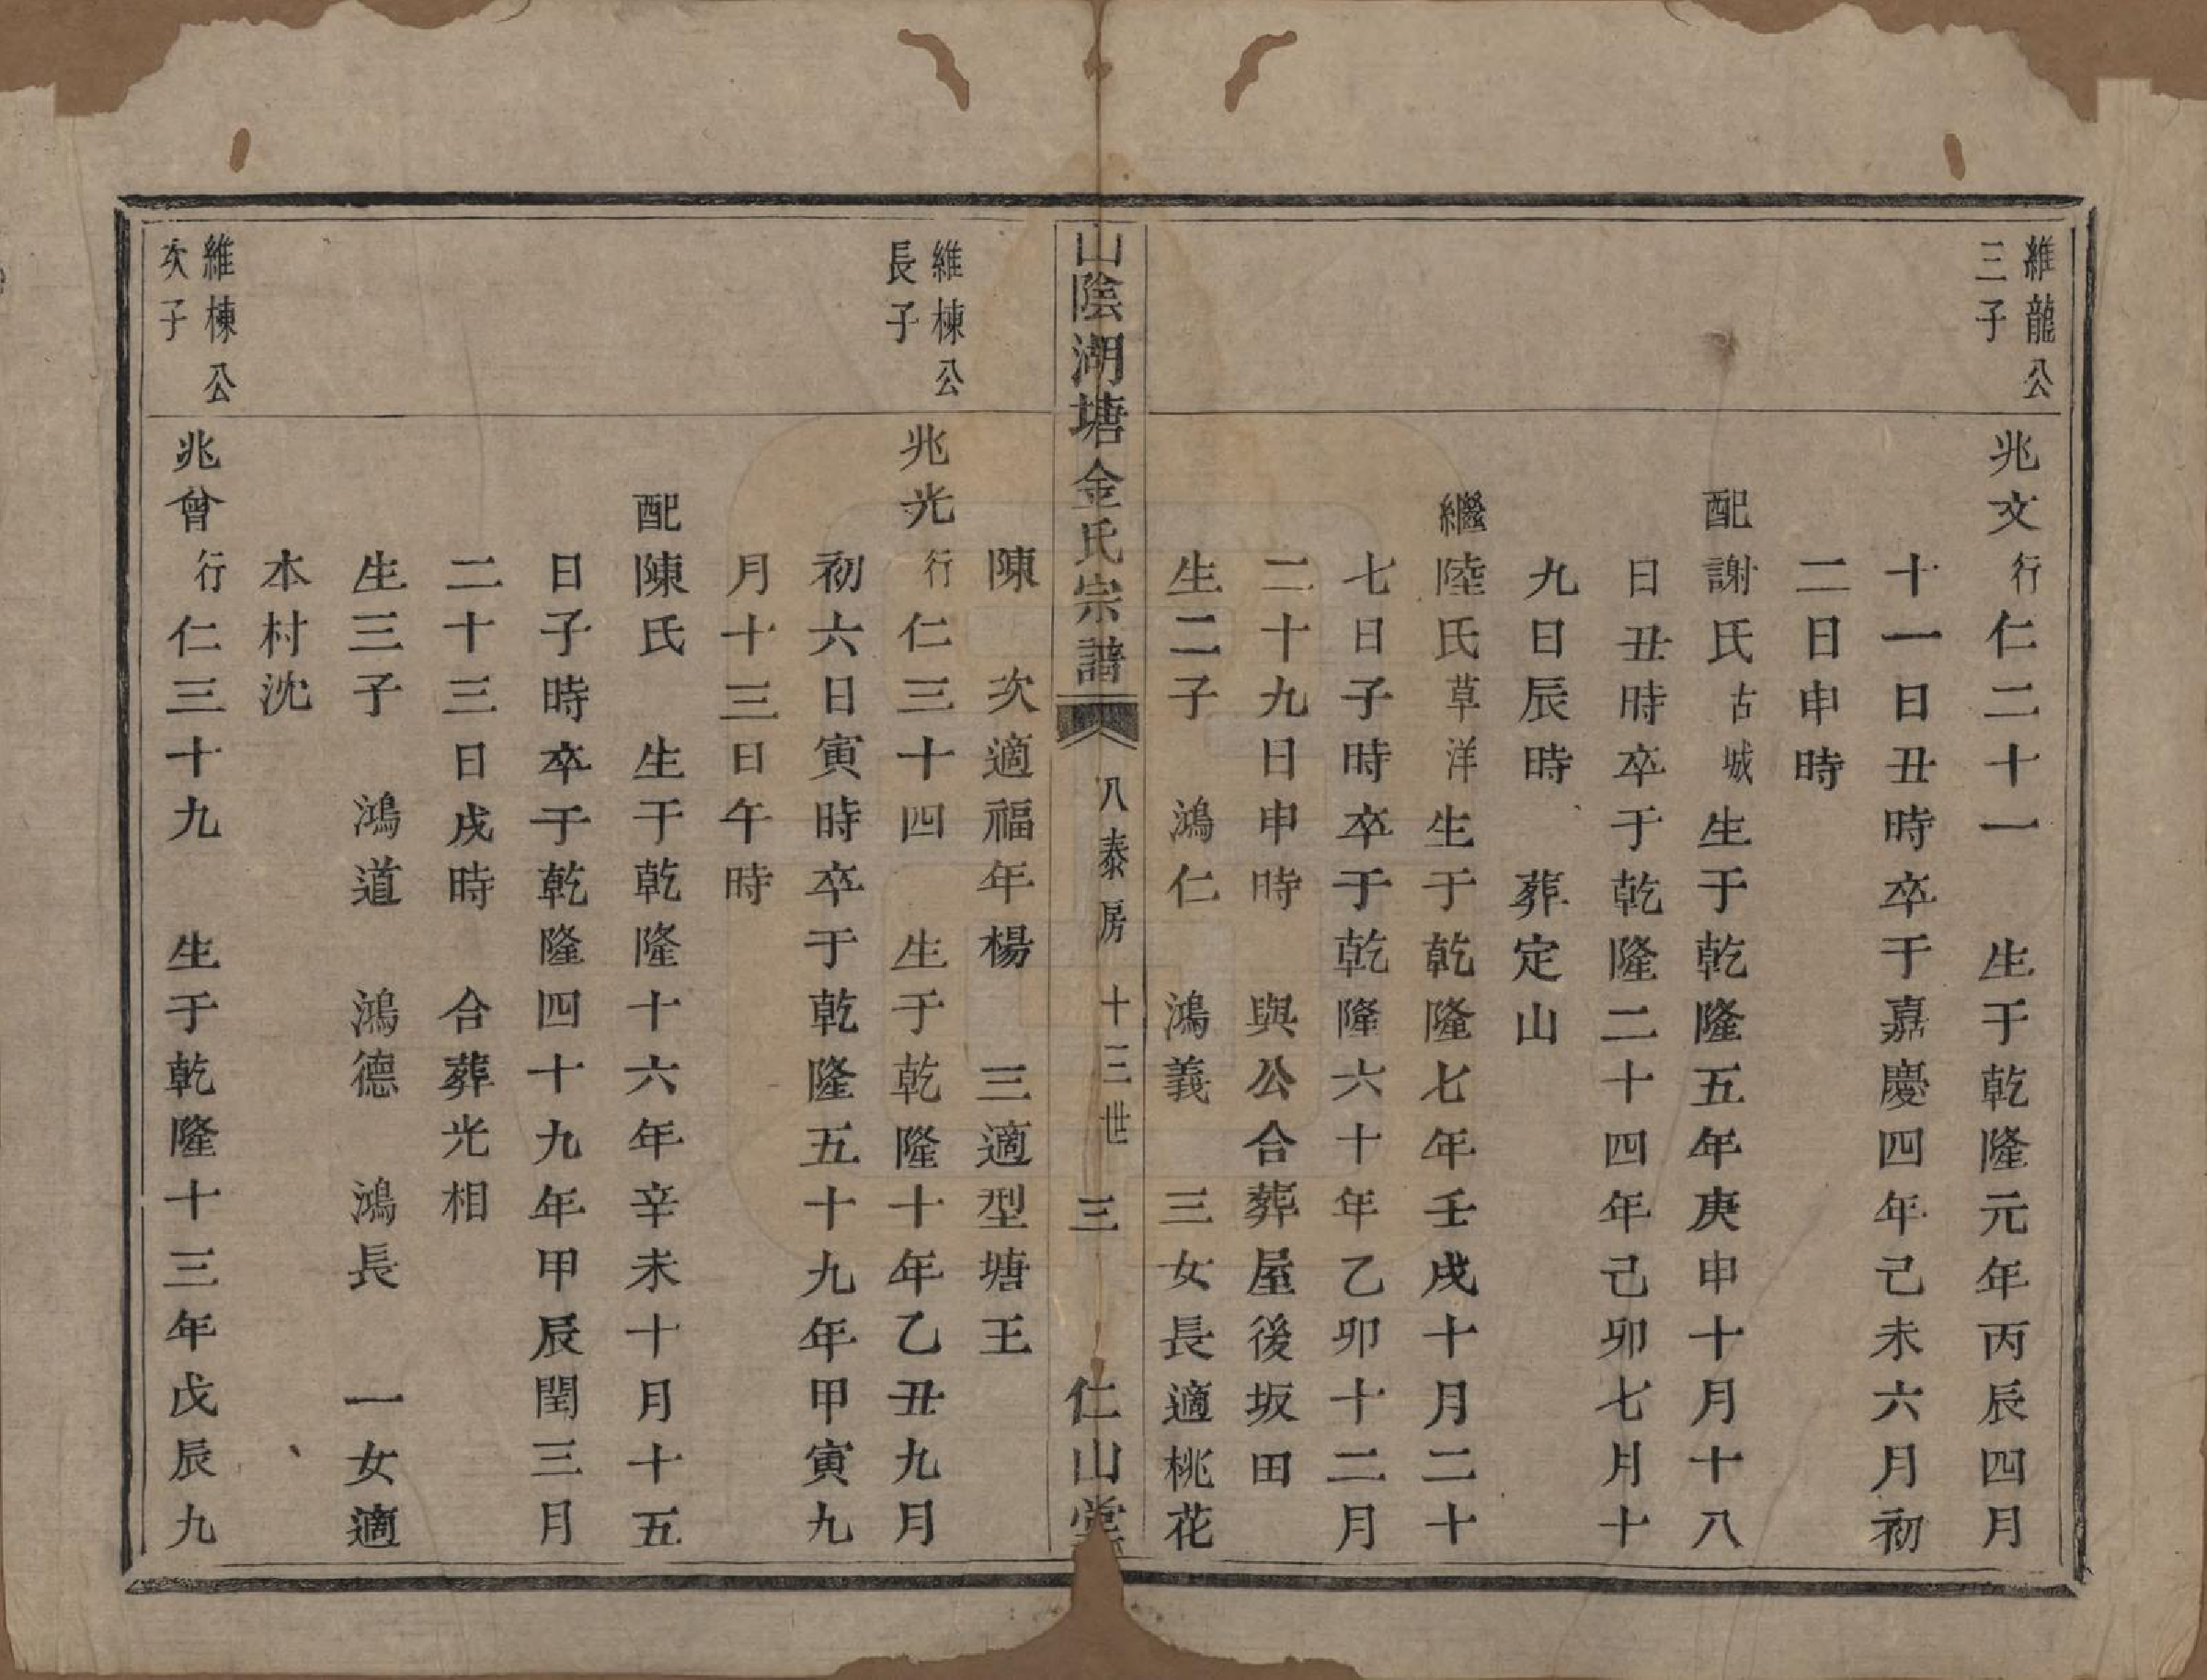 維龍公
三子
兆文行仁二十一　生于乾隆元年丙辰四月
十一日丑時卒于嘉慶四年己未六月初
二日申時
配謝氏古城生于乾隆五年庚申十月十八
日丑時卒于乾隆二十四年己卯七月十
九日辰時　葬定山
繼陸氏草洋生于乾隆七年壬戌十月二十
七日子時卒于乾隆六十年乙卯十二月
二十九日申時　與公合葬屋後坂田
生二子　鴻仁　鴻義　三女長適桃花
山陰湖塘金氏宗譜　八泰房　十三世　三　仁山堂
陳　次適福年楊　三適型塘王
維棟公
長子
兆光行仁三十四　生于乾隆十年乙丑九月
初六日寅時卒于乾隆五十九年甲寅九
月十三日午時
配陳氏　生于乾隆十六年辛未十月十五
日子時卒于乾隆四十九年甲辰閏三月
二十三日戌時　合葬光相
生三子　鴻道　鴻德　鴻長　一女適
本村沈
維棟公
次子
兆曾行仁三十九　生于乾隆十三年戊辰九